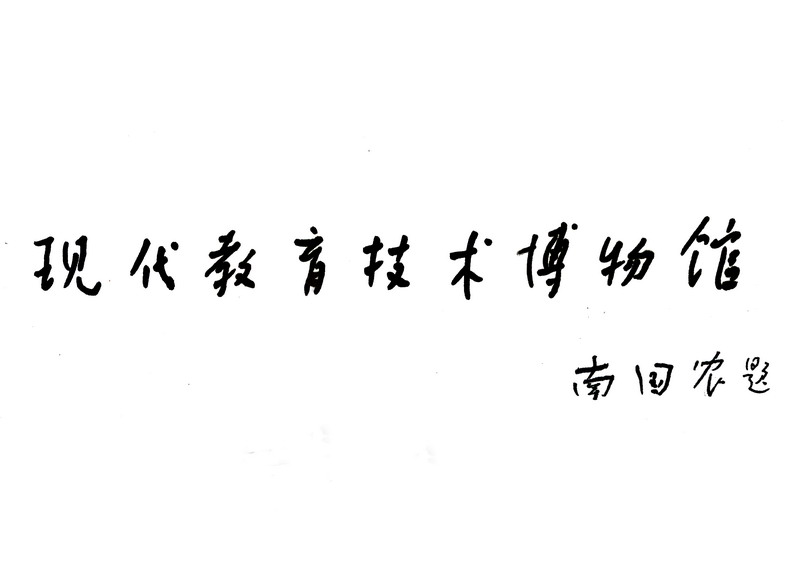 现代教育技术博物馆
南国农题